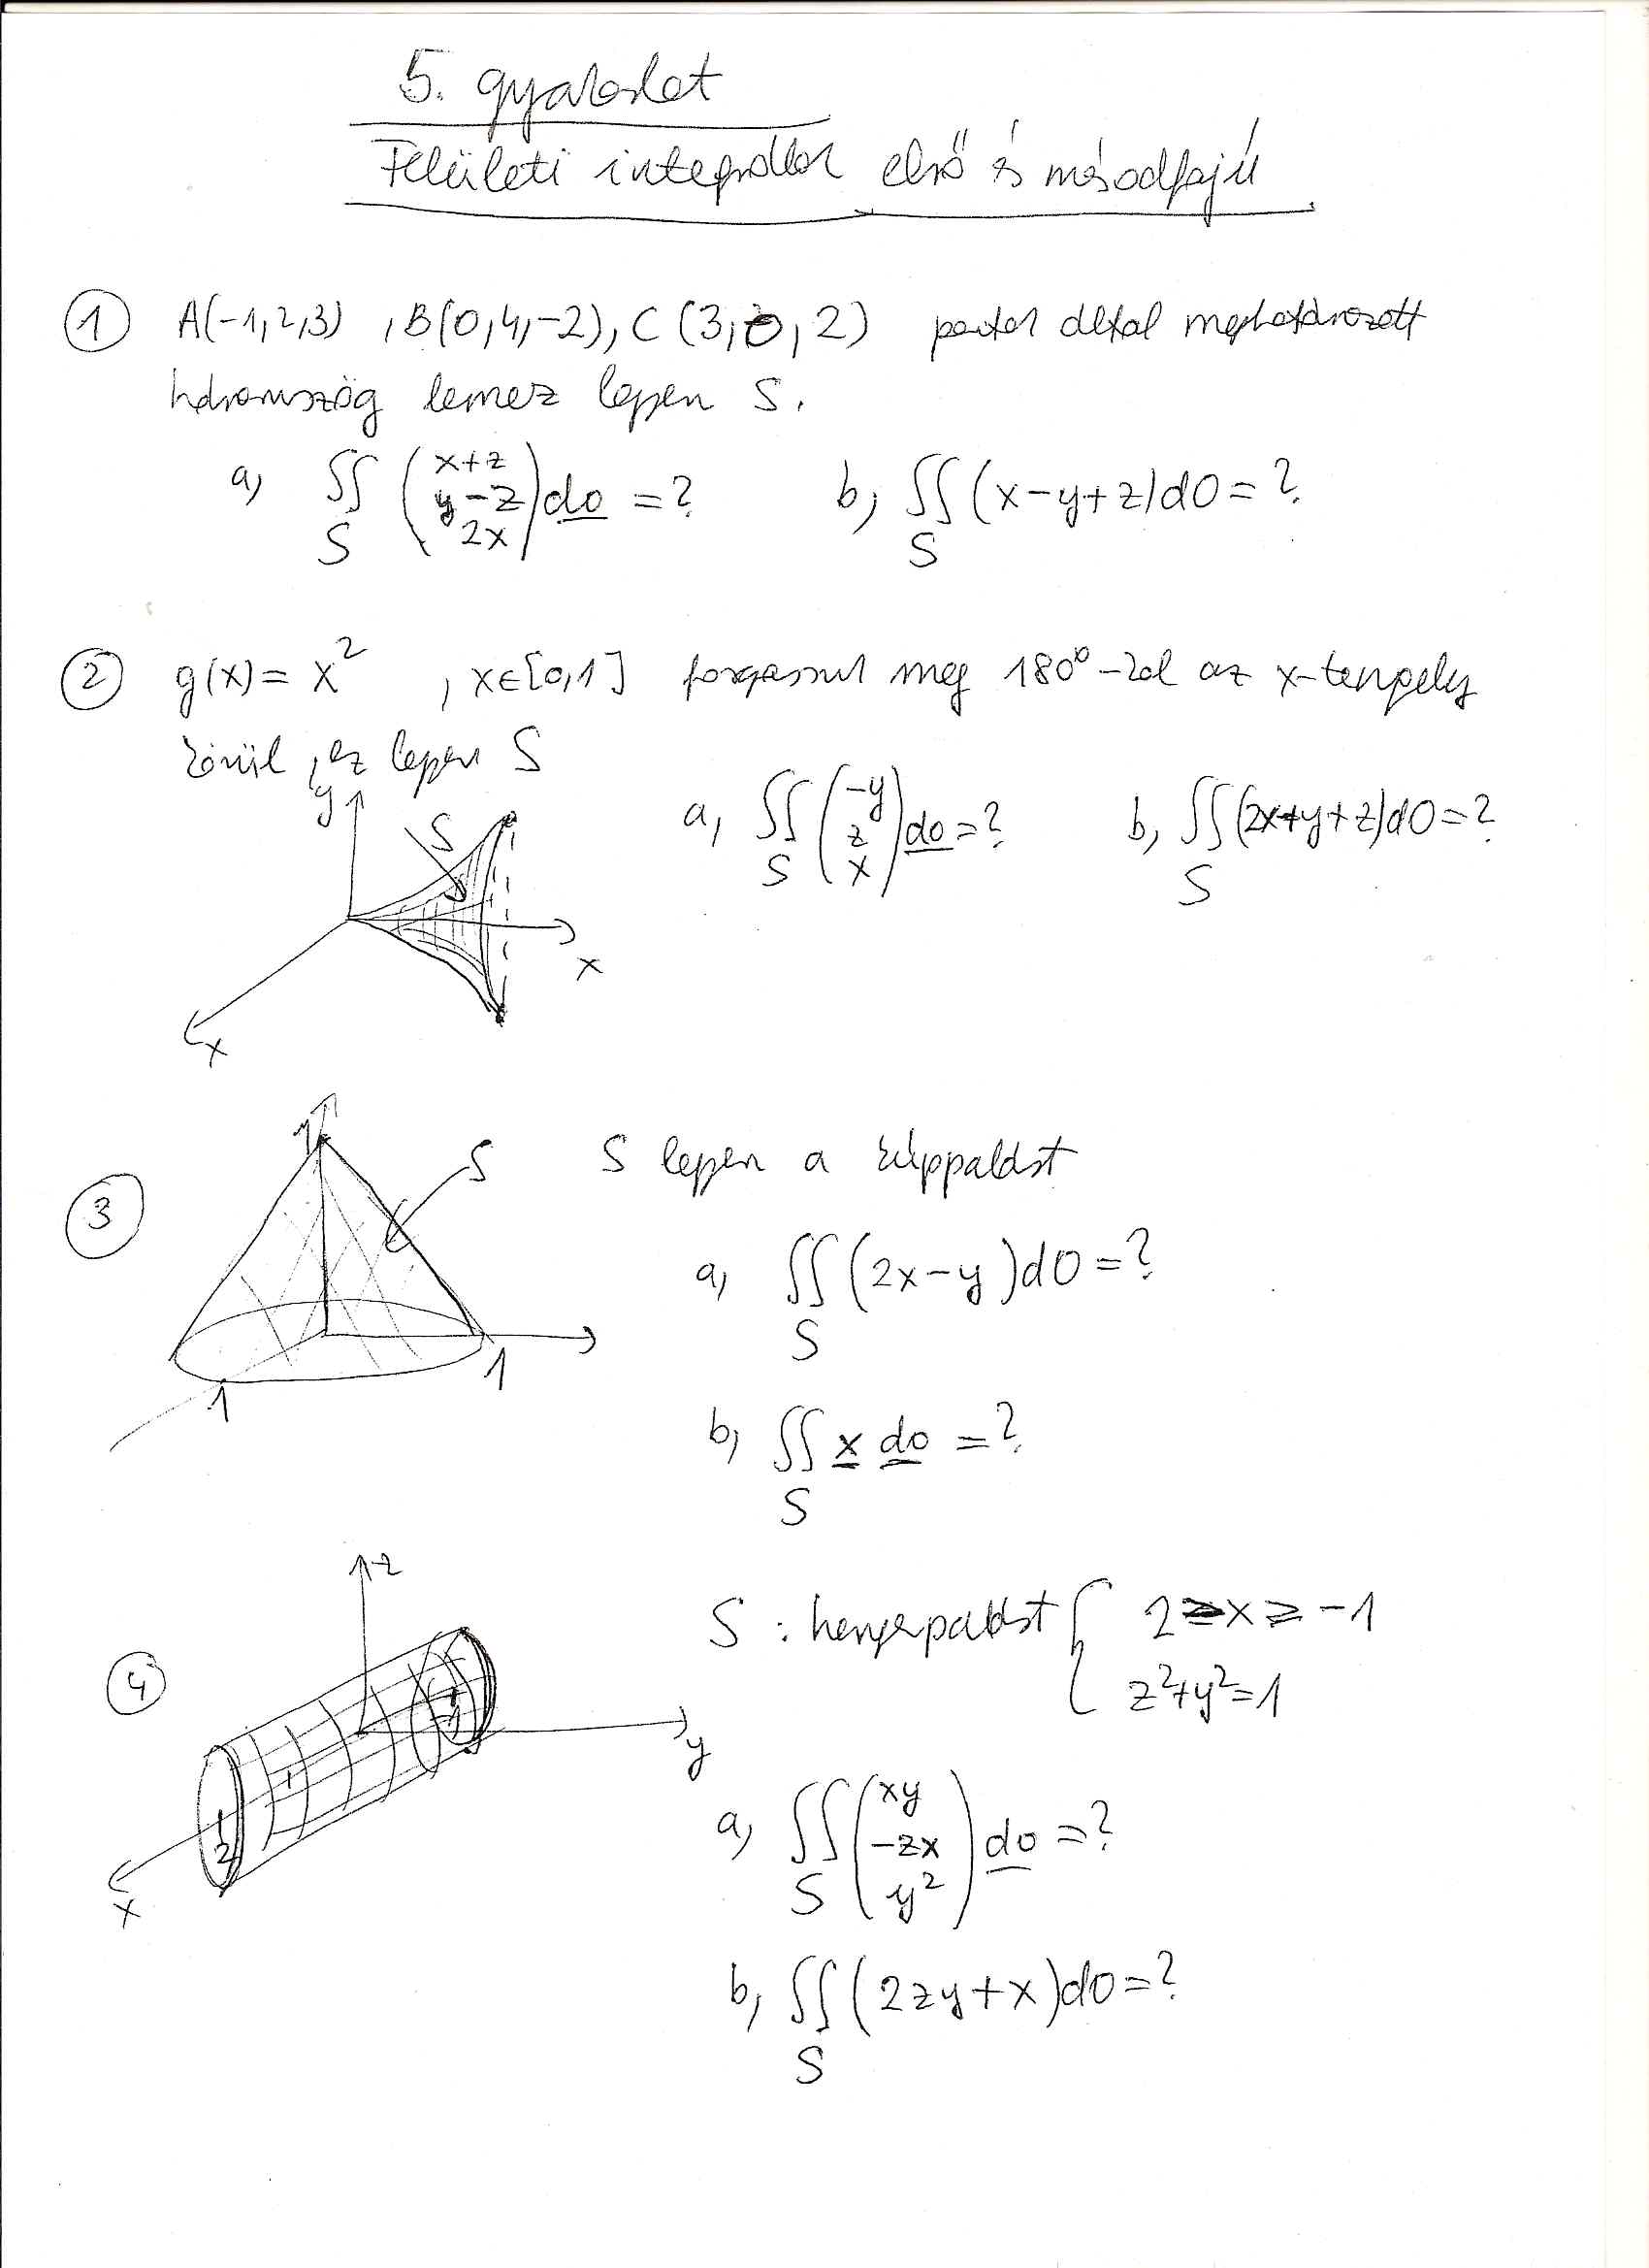 5. gyakorlat
Felületi integrálok első és másodfajú
① A(-1,2,3), B(0,4,-2), C(3,0,2) pontok által meghatározott
háromszög lemez legyen S.
a, ∬_S (x+z, y-z, 2x) do = ? b, ∬_S (x-y+z)dO = ?
② g(x) = x², x∈[0,1] forgassuk meg 180°-kal az x-tengely
körül, ez legyen S
y S x x
a, ∬_S (-y, z, x) do = ? b, ∬_S (2x+y+z)dO = ?
③ 1 S 1 1
S legyen a kúppalást
a, ∬_S (2x-y)dO = ?
b, ∬_S x do = ?
④ z y x 2 1
S: hengerpalást { 2≥x≥-1
z²+y²=1
a, ∬_S (xy, -zx, y²) do = ?
b, ∬_S (2zy+x)dO = ?